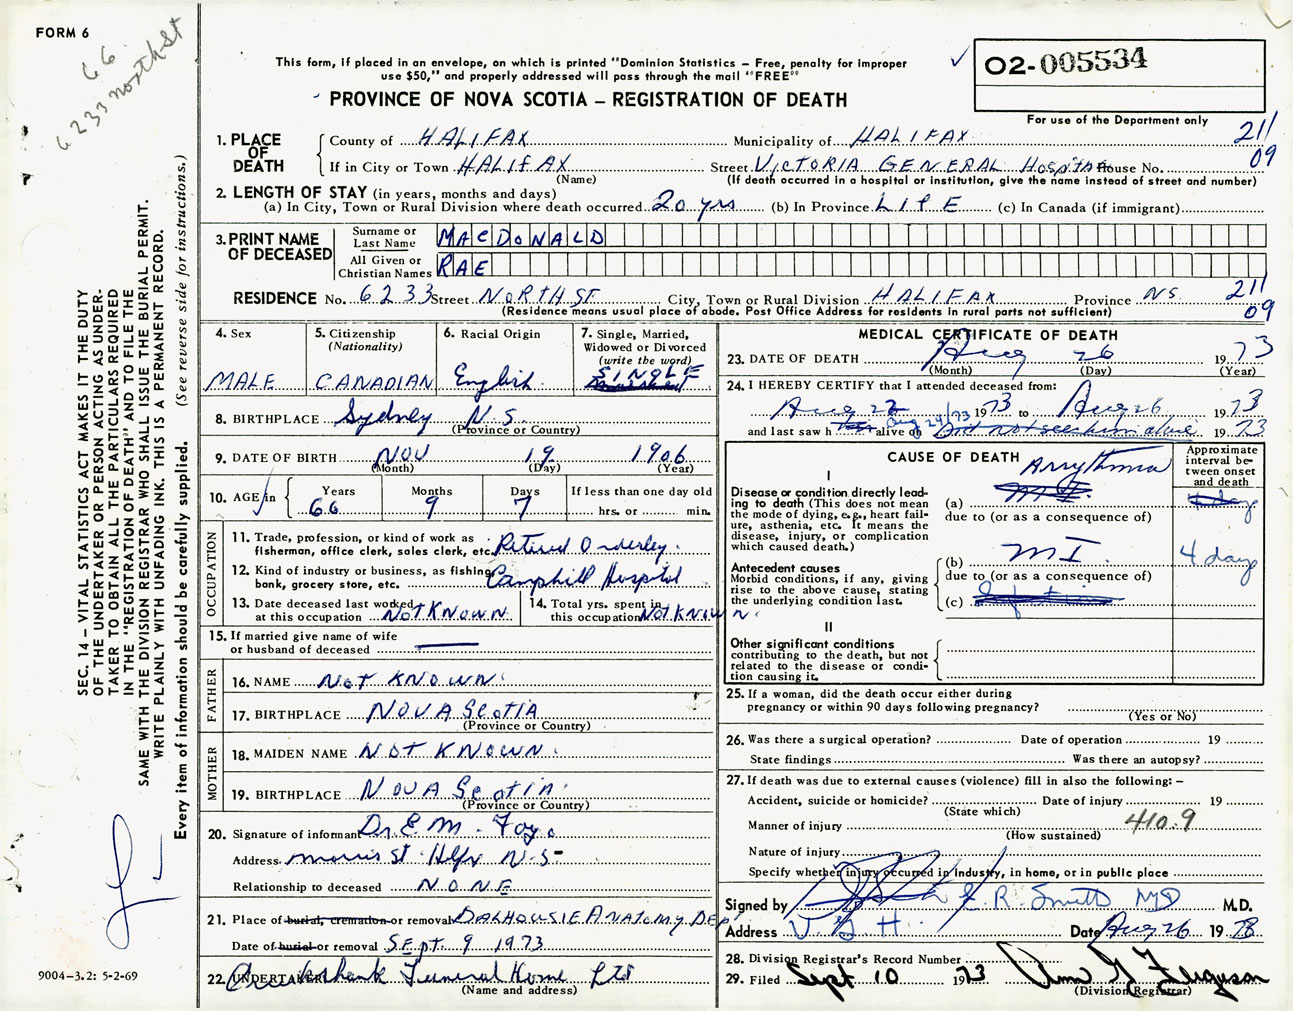 FORM 6
66
6233 North St
This form, if placed in an envelope, on which is printed "Dominion Statistics – Free, penalty for improper
use $50," and properly addressed will pass through the mail "FREE"
PROVINCE OF NOVA SCOTIA – REGISTRATION OF DEATH
O2-005534
For use of the Department only
211
09
1. PLACE OF DEATH
County of HALIFAX Municipality of HALIFAX
If in City or Town HALIFAX Street VICTORIA GENERAL HOSPITAL House No.
(Name) (If death occurred in a hospital or institution, give the name instead of street and number)
2. LENGTH OF STAY (in years, months and days)
(a) In City, Town or Rural Division where death occurred 20 yrs (b) In Province LIFE (c) In Canada (if immigrant)
3. PRINT NAME OF DECEASED
Surname or Last Name MACDONALD
All Given or Christian Names RAE
RESIDENCE No. 6233 Street NORTH ST City, Town or Rural Division HALIFAX Province NS. 211
09
(Residence means usual place of abode. Post Office Address for residents in rural parts not sufficient)
4. Sex
MALE
5. Citizenship
(Nationality)
CANADIAN
6. Racial Origin
English
7. Single, Married,
Widowed or Divorced
(write the word)
SINGLE
8. BIRTHPLACE Sydney N.S.
(Province or Country)
9. DATE OF BIRTH NOV 19 1906
(Month) (Day) (Year)
10. AGE in
Years Months Days If less than one day old
66 9 7 hrs. or min.
OCCUPATION
11. Trade, profession, or kind of work as
fisherman, office clerk, sales clerk, etc. Retired Orderley.
12. Kind of industry or business, as fishing,
bank, grocery store, etc. Camphill Hospital
13. Date deceased last worked
at this occupation NOT KNOWN.
14. Total yrs. spent in
this occupation NOT KNOWN.
15. If married give name of wife
or husband of deceased —
FATHER
16. NAME NOT KNOWN
17. BIRTHPLACE NOVA SCOTIA
(Province or Country)
MOTHER
18. MAIDEN NAME NOT KNOWN.
19. BIRTHPLACE NOVA SCOTIA.
(Province or Country)
20. Signature of informant Dr. E. M.
Address Morris St Hlfx N-S-
Relationship to deceased NONE
21. Place of burial, cremation or removal DALHOUSIE ANATOMY DEP
Date of burial or removal SEPT. 9 1973
22. UNDERTAKER Cruikshank Funeral Home Ltd
(Name and address)
MEDICAL CERTIFICATE OF DEATH
23. DATE OF DEATH Aug 26 1973
(Month) (Day) (Year)
24. I HEREBY CERTIFY that I attended deceased from:
Aug 22 1973 to Aug 26 1973
and last saw h alive on Aug 24/73 Did not see him alive 1973
CAUSE OF DEATH
Approximate interval between onset and death
I
Disease or condition directly leading to death (This does not mean the mode of dying, e.g., heart failure, asthenia, etc. It means the disease, injury, or complication which caused death.)
(a) Arrythmia
due to (or as a consequence of)
Antecedent causes
Morbid conditions, if any, giving rise to the above cause, stating the underlying condition last.
(b) MI 4 days
due to (or as a consequence of)
(c)
II
Other significant conditions
contributing to the death, but not related to the disease or condition causing it.
25. If a woman, did the death occur either during
pregnancy or within 90 days following pregnancy?
(Yes or No)
26. Was there a surgical operation? Date of operation 19
State findings Was there an autopsy?
27. If death was due to external causes (violence) fill in also the following: –
Accident, suicide or homicide? Date of injury 19
(State which)
Manner of injury 410.9
(How sustained)
Nature of injury
Specify whether injury occurred in industry, in home, or in public place
Signed by E. R. Smith MD M.D.
Address V G H. Date Aug 26 1978
28. Division Registrar's Record Number
29. Filed Sept 10 1973 Ann G Ferguson
(Division Registrar)
SEC. 14 – VITAL STATISTICS ACT MAKES IT THE DUTY
OF THE UNDERTAKER OR PERSON ACTING AS UNDER-
TAKER TO OBTAIN ALL THE PARTICULARS REQUIRED
IN THE "REGISTRATION OF DEATH" AND TO FILE THE
SAME WITH THE DIVISION REGISTRAR WHO SHALL ISSUE THE BURIAL PERMIT.
WRITE PLAINLY WITH UNFADING INK. THIS IS A PERMANENT RECORD.
Every item of information should be carefully supplied. (See reverse side for instructions.)
9004-3.2: 5-2-69